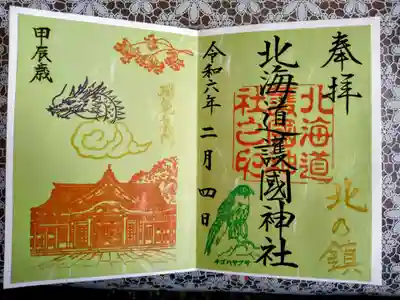 奉拝
北海道護國神社
北海道
護國神
社之印
北の鎮
令和六年
二月四日
甲辰歳